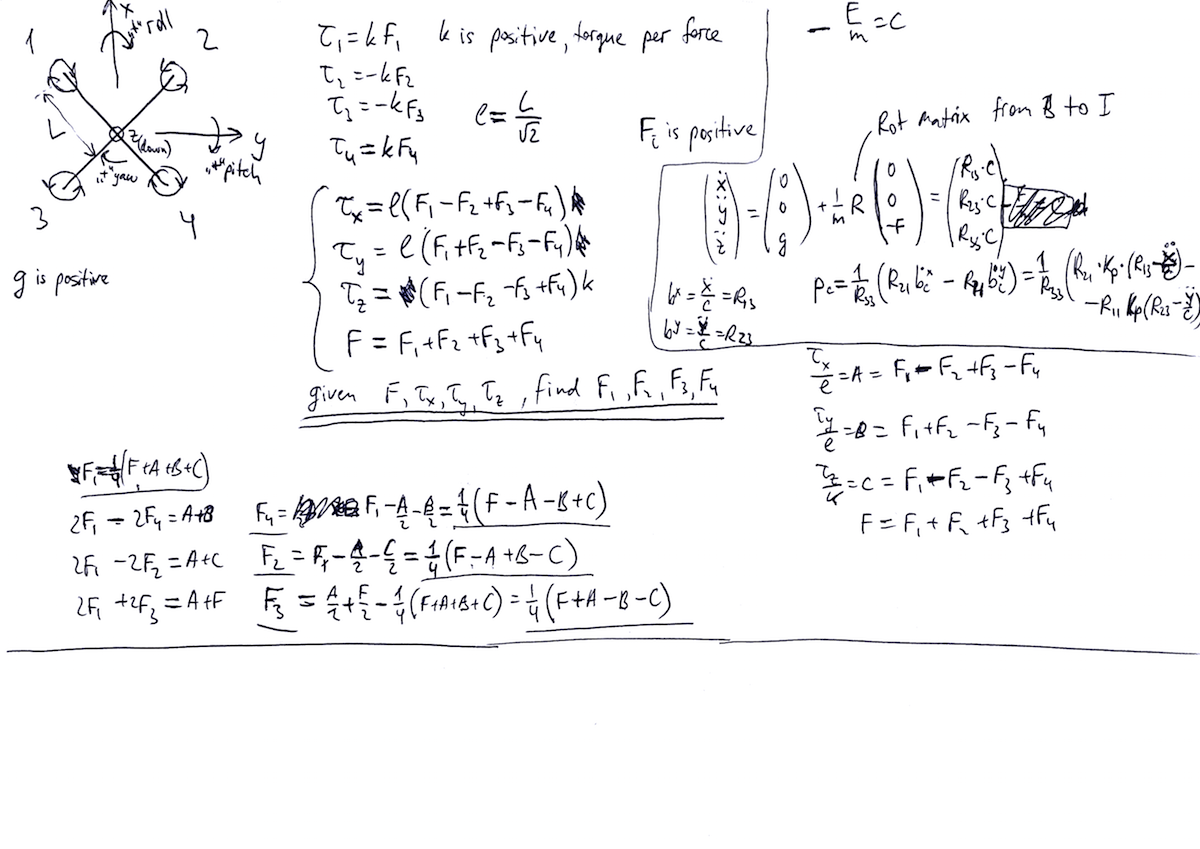 x
"+" roll
1
2
L
z (down)
y
"+" yaw
"+" pitch
3
4
g is positive
τ₁ = k F₁   k is positive, torque per force
τ₂ = -k F₂
τ₃ = -k F₃   ℓ = L/√2
τ₄ = k F₄
τx = ℓ(F₁ - F₂ + F₃ - F₄)
τy = ℓ(F₁ + F₂ - F₃ - F₄)
τz = (F₁ - F₂ - F₃ + F₄) k
F = F₁ + F₂ + F₃ + F₄
given F, τx, τy, τz, find F₁, F₂, F₃, F₄
- F/m = c
Fᵢ is positive
Rot matrix from B to I
(ẍ ÿ z̈) = (0 0 g) + 1/m R (0 0 -F) = (R₁₃·c R₂₃·c R₃₃·c)
bˣ = ẍ/c = R₁₃
bʸ = ÿ/c = R₂₃
pc = 1/R₃₃ (R₂₁ ḃcˣ - R₁₁ ḃcʸ) = 1/R₃₃ (R₂₁·Kp·(R₁₃ - ẍ/c) -
- R₁₁ Kp (R₂₃ - ÿ/c)
τx/ℓ = A = F₁ - F₂ + F₃ - F₄
τy/ℓ = B = F₁ + F₂ - F₃ - F₄
τz/k = C = F₁ - F₂ - F₃ + F₄
F = F₁ + F₂ + F₃ + F₄
F₁ = 1/4 (F + A + B + C)
2F₁ - 2F₄ = A + B   F₄ = F₁ - A/2 - B/2 = 1/4 (F - A - B + C)
2F₁ - 2F₂ = A + C   F₂ = F₁ - A/2 - C/2 = 1/4 (F - A + B - C)
2F₁ + 2F₃ = A + F   F₃ = A/2 + F/2 - 1/4 (F + A + B + C) = 1/4 (F + A - B - C)